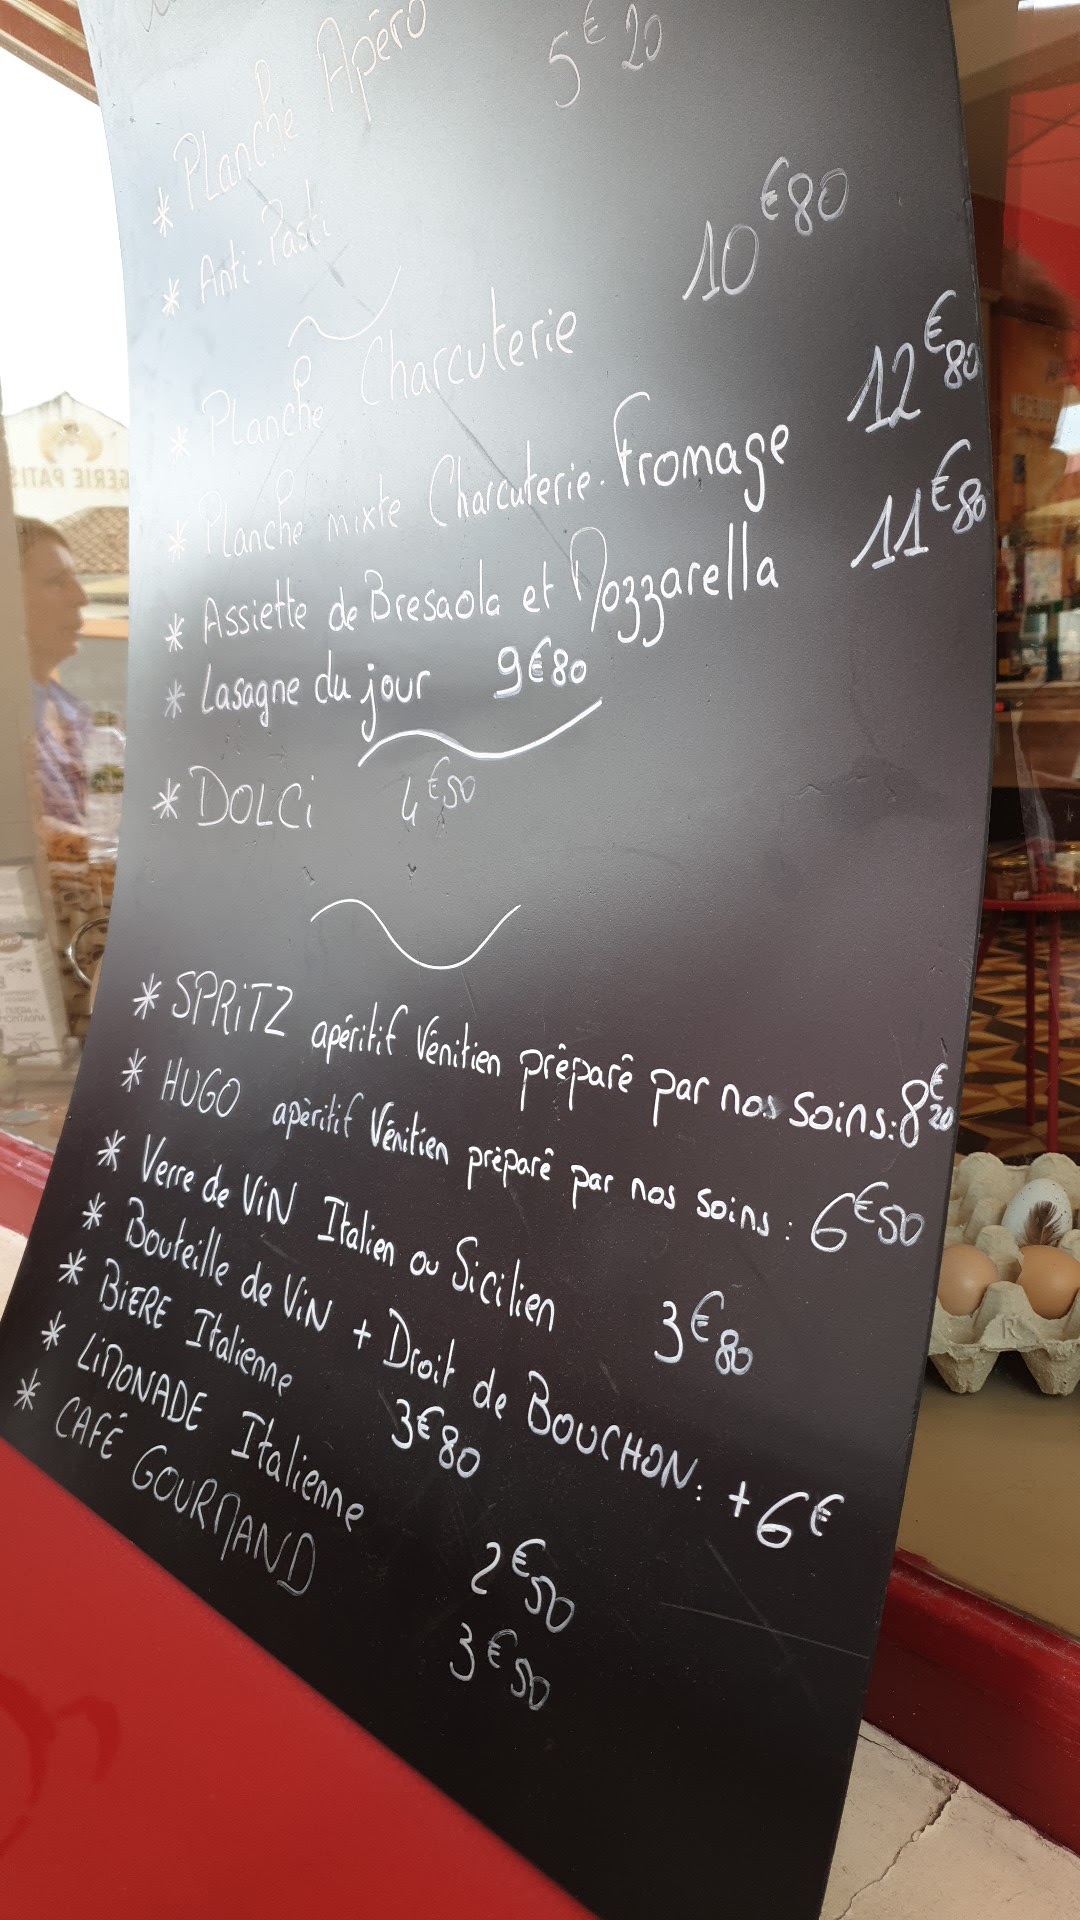 * Planche Apéro 5€20
* Anti-Pasti
* Planche Charcuterie 10€80
* Planche mixte Charcuterie.Fromage 12€80
* Assiette de Bresaola et Mozzarella 11€80
* Lasagne du jour 9€80
* DOLCi 4€50
* SPRiTZ apéritif Vénitien préparé par nos soins: 8€20
* HUGO apéritif Vénitien préparé par nos soins: 6€50
* Verre de ViN Italien ou Sicilien 3€80
* Bouteille de ViN + Droit de BOUCHON: +6€
* BiERE Italienne 3€80
* LiMONADE Italienne 2€50
* CAFÉ GOURMAND 3€50